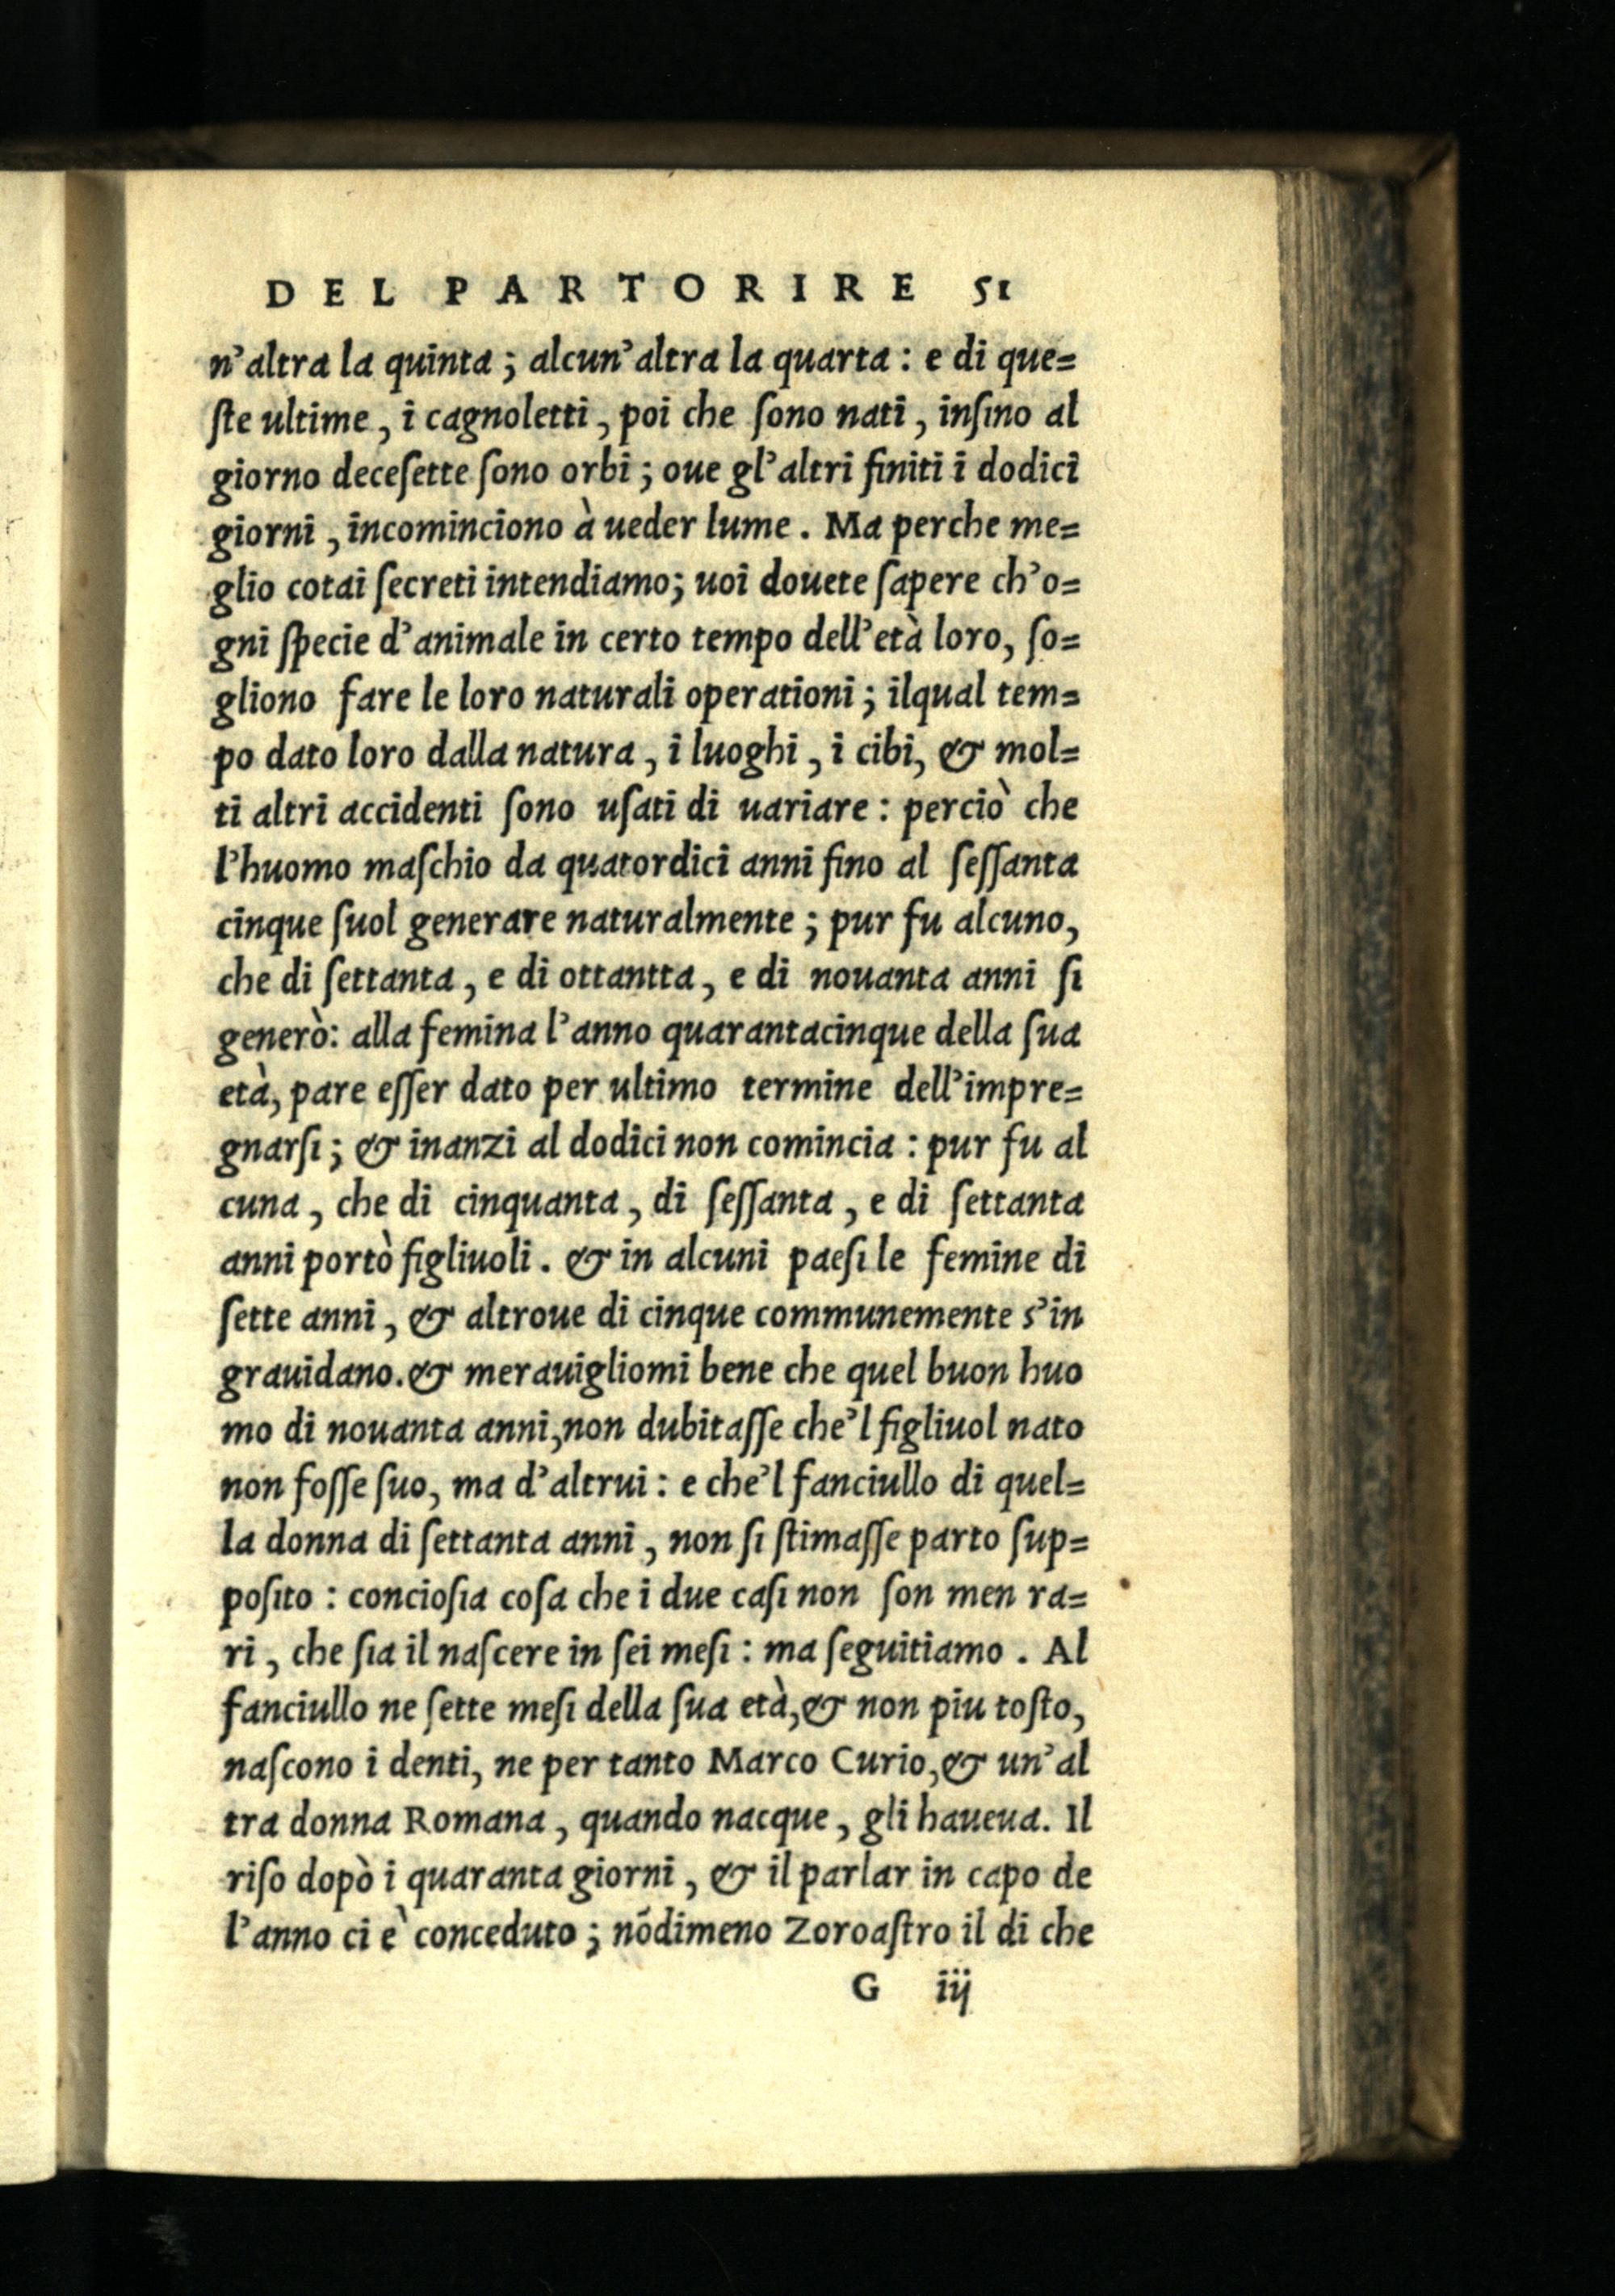 DEL PARTORIRE 51
n'altra la quinta; alcun'altra la quarta: e di que=
ſte ultime, i cagnoletti, poi che ſono nati, inſino al
giorno deceſette ſono orbi; oue gl'altri finiti i dodici
giorni, incominciono à ueder lume. Ma perche me=
glio cotai ſecreti intendiamo; uoi douete ſapere ch'o=
gni ſpecie d'animale in certo tempo dell'età loro, ſo=
gliono fare le loro naturali operationi; ilqual tem=
po dato loro dalla natura, i luoghi, i cibi, & mol=
ti altri accidenti ſono uſati di uariare: perciò che
l'huomo maſchio da quatordici anni fino al ſeſſanta
cinque ſuol generare naturalmente; pur fu alcuno,
che di ſettanta, e di ottantta, e di nouanta anni ſi
generò: alla femina l'anno quarantacinque della ſua
età, pare eſſer dato per ultimo termine dell'impre=
gnarſi; & inanzi al dodici non comincia: pur fu al
cuna, che di cinquanta, di ſeſſanta, e di ſettanta
anni portò figliuoli. & in alcuni paeſi le femine di
ſette anni, & altroue di cinque communemente s'in
grauidano. & merauigliomi bene che quel buon huo
mo di nouanta anni, non dubitaſſe che'l figliuol nato
non foſſe ſuo, ma d'altrui: e che'l fanciullo di quel=
la donna di ſettanta anni, non ſi ſtimaſſe parto ſup=
poſito: concioſia coſa che i due caſi non ſon men ra=
ri, che ſia il naſcere in ſei meſi: ma ſeguitiamo. Al
fanciullo ne ſette meſi della ſua età, & non piu toſto,
naſcono i denti, ne per tanto Marco Curio, & un'al
tra donna Romana, quando nacque, gli haueua. Il
riſo dopò i quaranta giorni, & il parlar in capo de
l'anno ci è conceduto; nõdimeno Zoroaſtro il di che
G iij